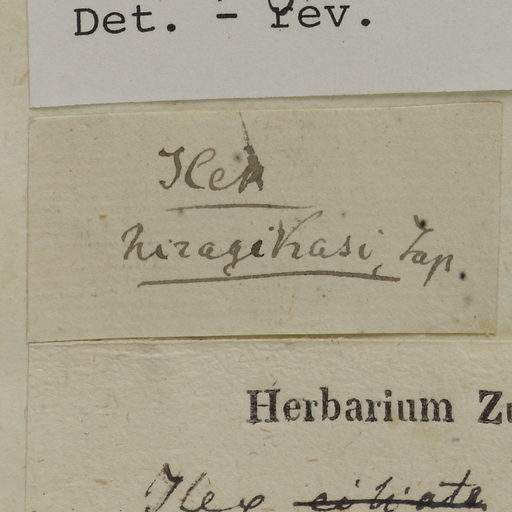 Det. - rev.
Ilex
hiragiKasi, Jap.
Herbarium Zu
Ilex